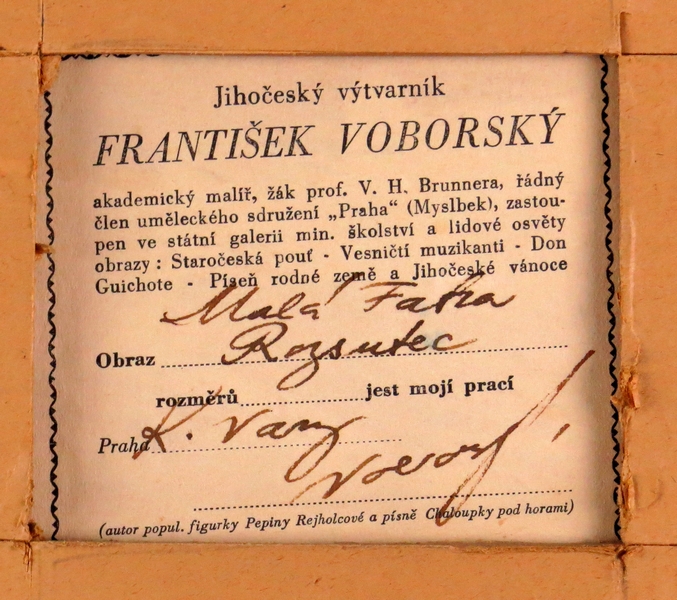 Jihočeský výtvarník
FRANTIŠEK VOBORSKÝ
akademický malíř, žák prof. V. H. Brunnera, řádný
člen uměleckého sdružení „Praha“ (Myslbek), zastou-
pen ve státní galerii min. školství a lidové osvěty
obrazy: Staročeská pouť - Vesničtí muzikanti - Don
Guichote - Píseň rodné země a Jihočeské vánoce
Malá Fatra
Obraz Rozsutec
rozměrů jest mojí prací
Praha K. Vary
(autor popul. figurky Pepiny Rejholcové a písně Chaloupky pod horami)